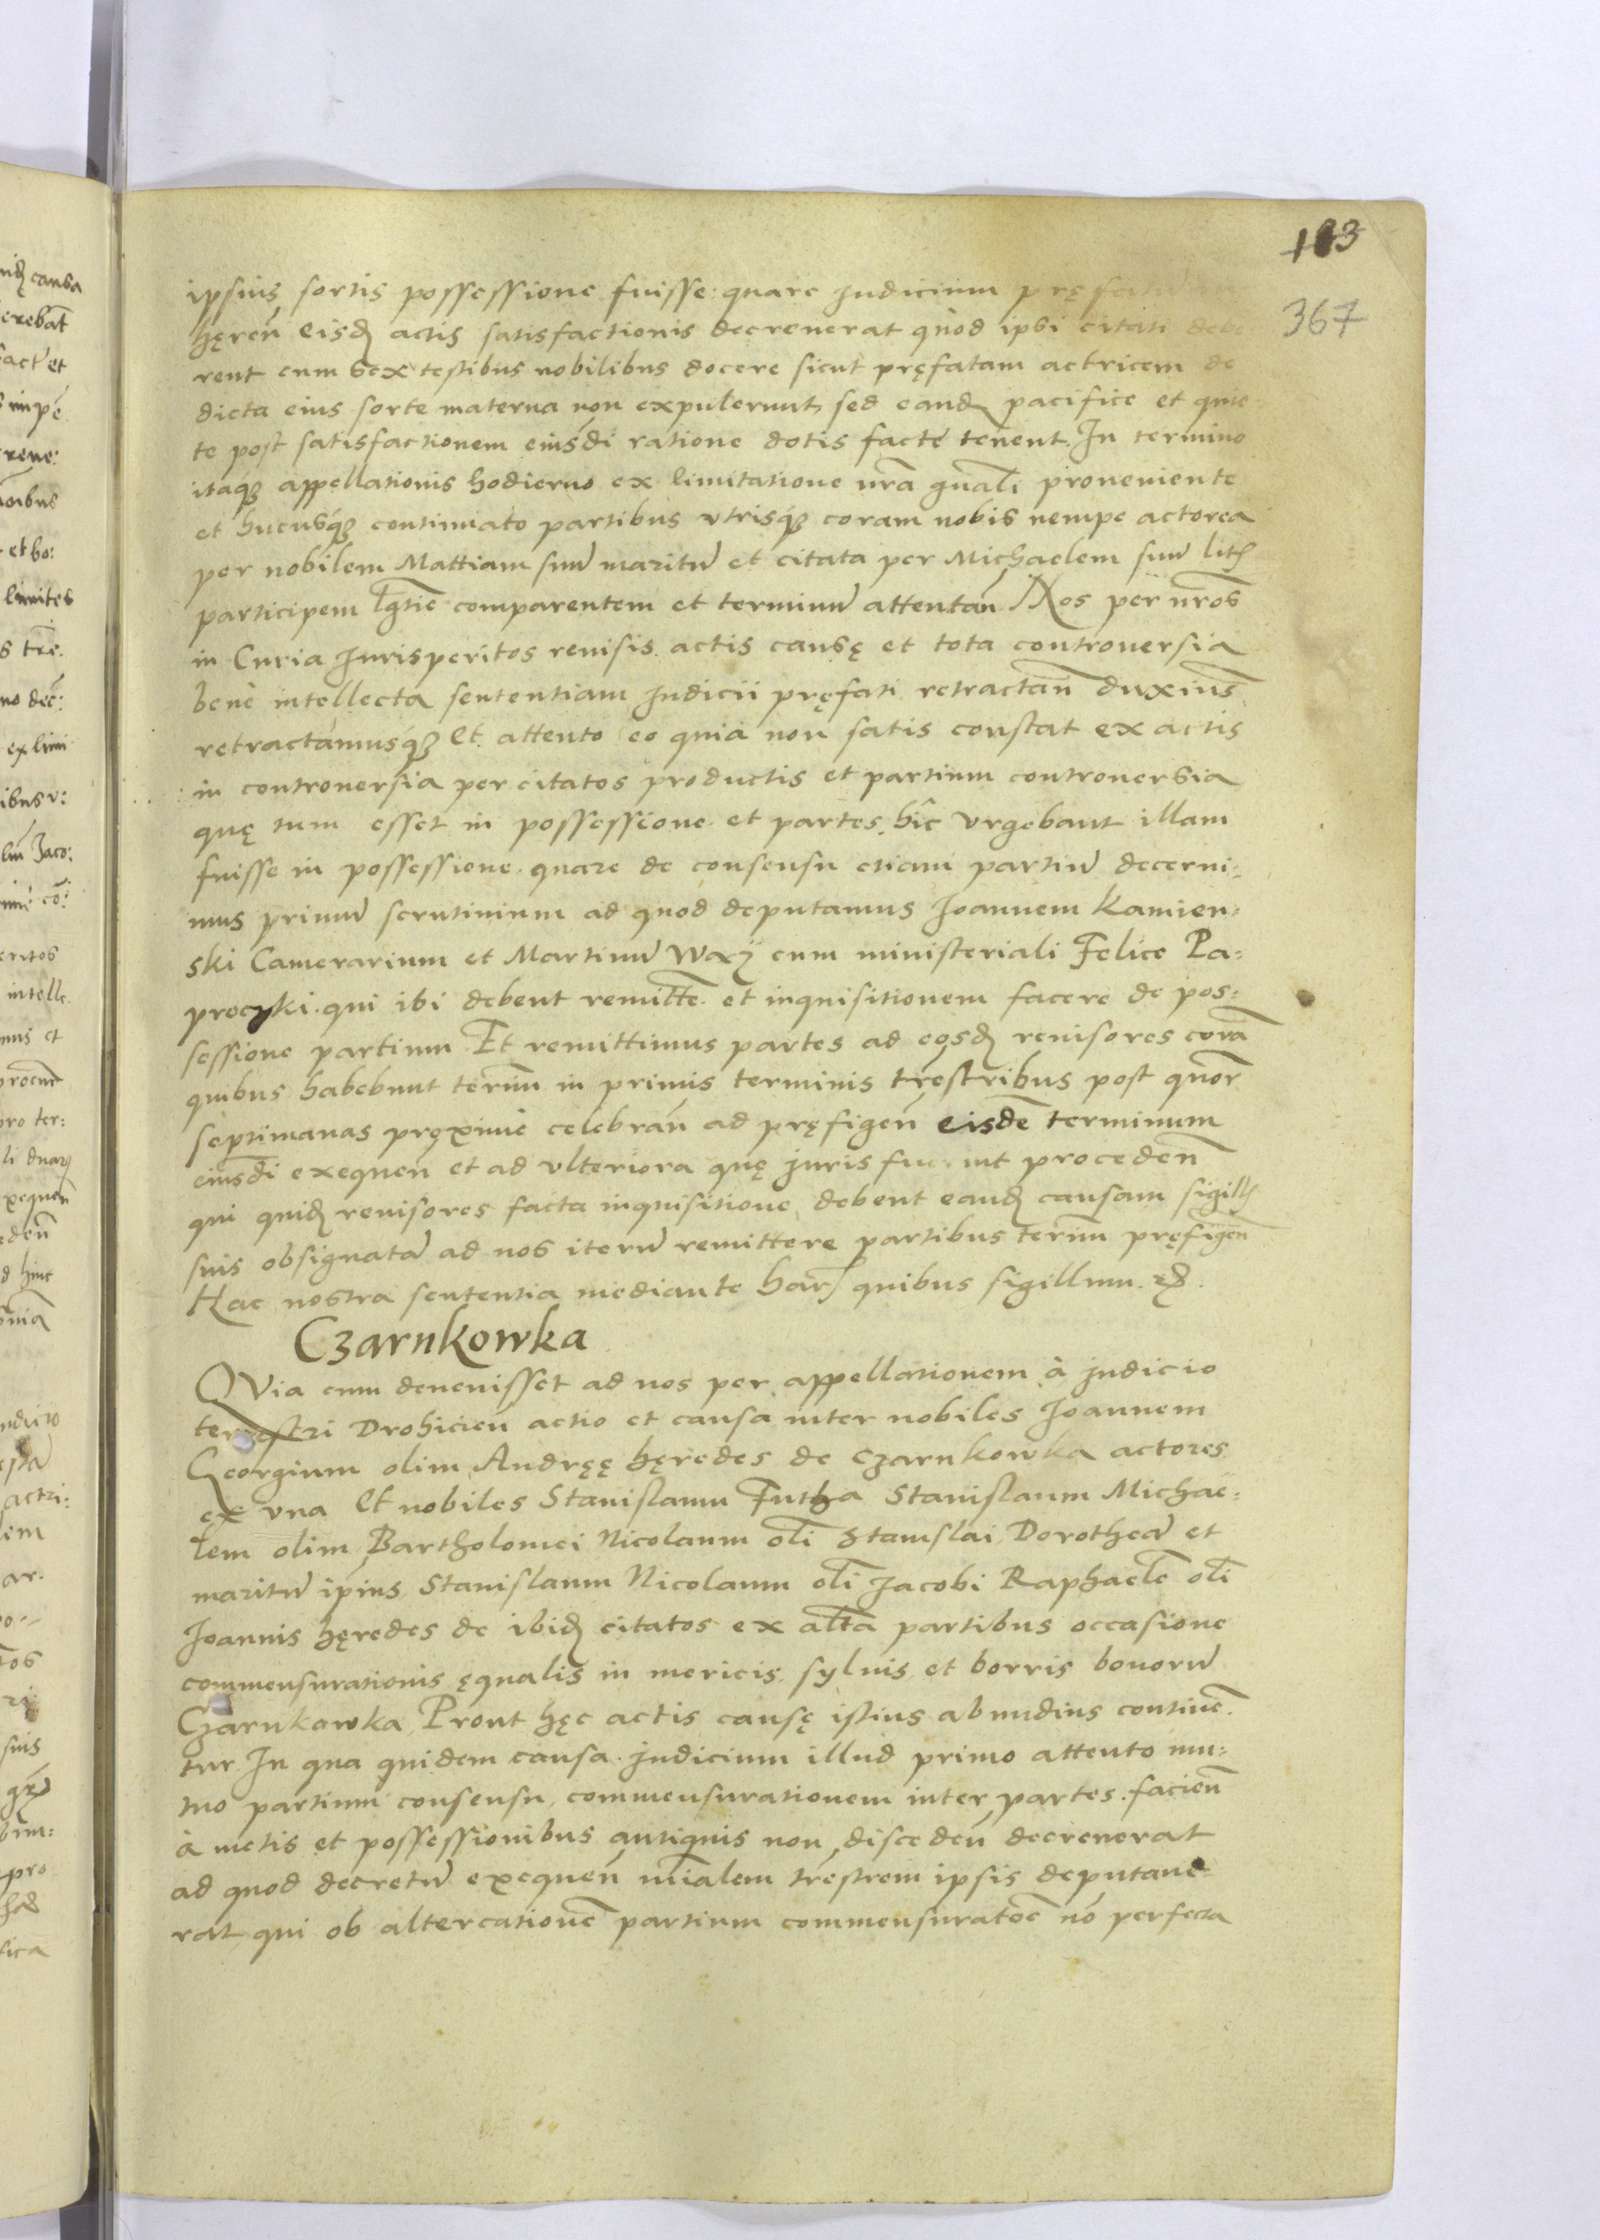 113
367
ipsius sortis possessione fuisse: quare Judicium pręf
hęren̄ eisdꝫ actis satisfactionis decreuerat quòd ipsi citati debe
rent cum sex testibus nobilibus docere sicut pręfatam actricem de
dicta eius sorte materna non expulerunt, sed eandꝫ pacifice et quie
te post satisfactionem eiusdi ratione dotis factè tenent. In termino
itaqꝫ appellationis hodierno ex limitatione nr̄a gn̄ali proueniente
et hucusqꝫ continuato partibus vtrisqꝫ coram nobis nempe actorea
per nobilem Mattiam suū maritū et citata per Michaelem suū litꝭ
participem ltīe comparentem et terminū attentan̄ Nos per nr̄os
in Curia Jurisperitos reuisis actis causę et tota controuersia
benè intellecta sententiam judicii pręfati retractan̄ duximꝰ
retractámusqꝫ Et attento eo quia non satis constat ex actis
in controuersia per citatos productis et partium controuersia
quę tum esset in possessione et partes hîc vrgebant illam
fuisse in possessione quare de consensu etiam partiū decerni:
mus primū scrutinium ad quod deputamus Joannem Kamien:
ski Camerarium et Martinū Waxÿ cum ministeriali Felice Pa:
proczki qui ibi debent remitte et inquisitionem facere de pos:
sessione partium Et remittimus partes ad eosdꝫ reuisores corā
quibus habebunt termī in primis terminis trēstribus post quōr
septimanas proxime celebran̄ ad pręfigen̄ eisdē terminum
eiusdi exequen̄ et ad vlteriora quę juris fuerint proceden̄
qui quidꝫ reuisores facta inquisitione debent eandꝫ causam sigillꝭ
suis obsignatā ad nos iterū remittere partibus termī pręfigen̄
Hac nostra sententia mediante harꝭ quibus sigillum. &.
Czarnkowka
QVia cum deuenisset ad nos per appellationem à judicio
terrestri Drohicien actio et causa inter nobiles Joannem
Georgium olim Andręę hęredes de Czarnkowka actores
ex vna Et nobiles Stanislaum Futha Stanislaum Michae:
lem olim Bartholomei Nicolaum oli Stanislai Dorotheā et
maritū ip̄ius Stanislaum Nicolaum oli Jacobi Raphaelē oli
Joannis hęredes de ibidꝫ citatos ex altā partibus occasione
commensurationis ęqualis in mericis syluis et borris bonorū
Czarnkowka Prout hęc actis causę istius abundius contine
tur In qua quidem causa judicium illud primo attento mu:
tuo partium consensu commensurationem inter partes facien̄
à metis et possessionibus antiquis non disceden̄ decreuerat
ad quod decretū exequen̄ mīalem trēstrem ipsis deputaue
rat qui ob altercationē partium commensuratōē nō perfecta